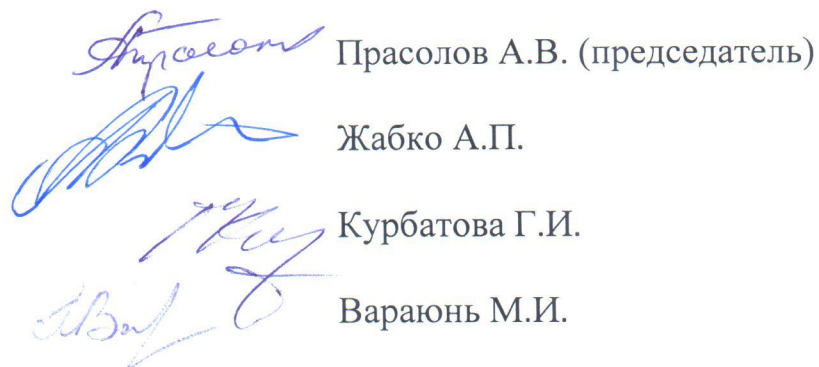 Прасолов А.В. (председатель)
Жабко А.П.
Курбатова Г.И.
Вараюнь М.И.